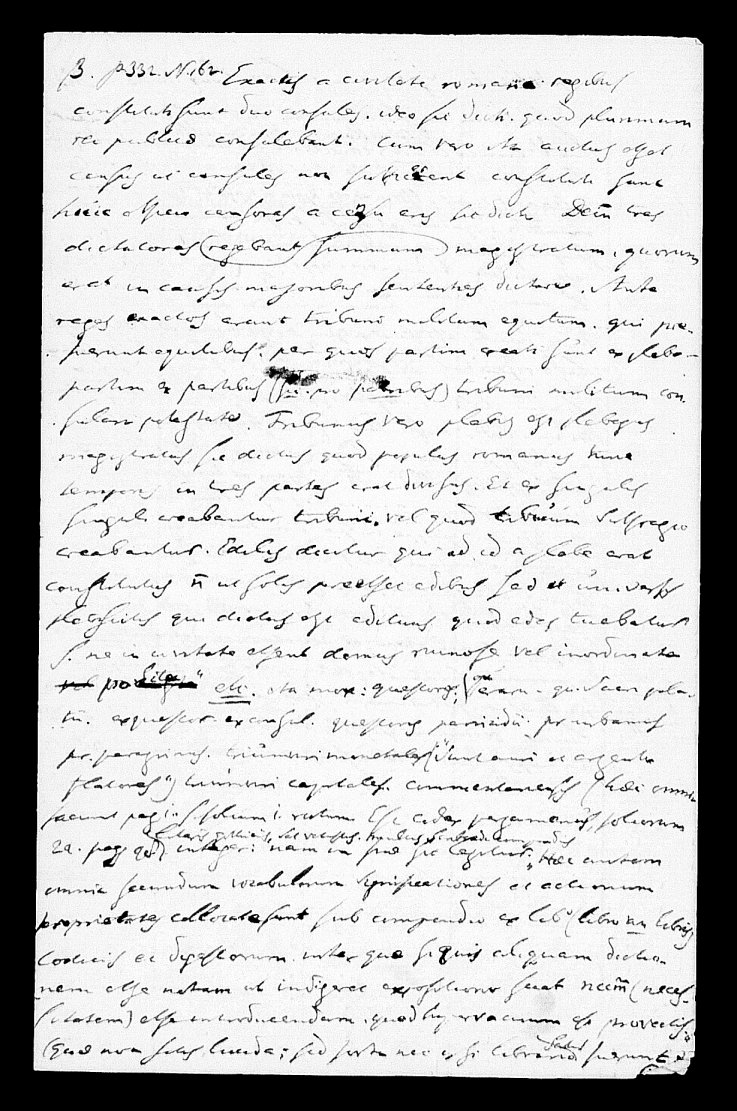 β. p 332. N. 62. Exactis a civitate romana regibus
constituti sunt duo consules. ideo sic dicti. quod plurimum
rei publice consulebant. Cum vero ita auctus esset
census ut consules non sufficerent constituti sunt
huic officio censores a censu eris sic dicti Dein tres
dictatores (regebant summum) magistratum, quorum
erat in causis maioribus sententias dictare. Ante
reges exactos erant tribuni militum equitum. qui pre-
fuerunt equitibus. per quos partim creati sunt ex plebe
partim ex partibus (sic. pro patribus) tribuni militum con-
sulari potestate. Tribunus vero plebis est plebegus
magistratus sic dictus quod populus romanus tunc
temporis in tres partes erat divisus. Et ex singulis
singuli creabantur tribuni, vel quod tribuum suffragio
creabantur. Edilis dicitur qui ad id a plebe erat
constitutus n ut solis preesset edibus sed et universis
plebiscitis qui dictus est edituus quod edes tuebatur
S. ne in civitate essent domus ruinose vel inordinate
etc. ita mox: questores, erarii. qui
. exquestor. exconsul. questores parricidii. pr. urbanus
pr. peregrinus. triumviri monetales ("sunt auri et argenti
flatores") triumviri capitales. commentariensis (hec omnia
faciunt pag. i. folium i. rectum Est codex pergamenus, foliorum
22. integer: nam in fine sic legitur: "Hec autem
omnia secundum vocabulorum significationes et actionum
proprietates collocata sunt sub compendio ex libo (libro an libris)
Codicis et digestorum. inter que siquis aliquam dictio-
nem esse notam ut indigeret expositione sciat necem (neces-
sitatem) esse introducendum. quod
(Que non satis lucida; sed forte nec ipsi librario satis fuerunt.